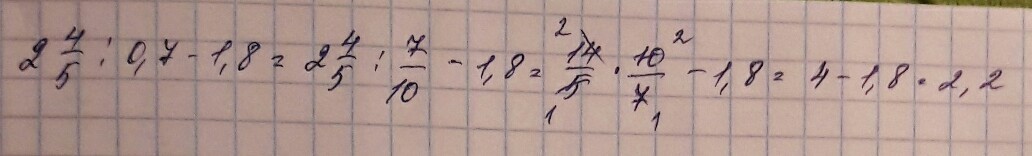 2 4/5 : 0,7 - 1,8 = 2 4/5 : 7/10 - 1,8 = 14/5 · 10/7 - 1,8 = 4 - 1,8 = 2,2